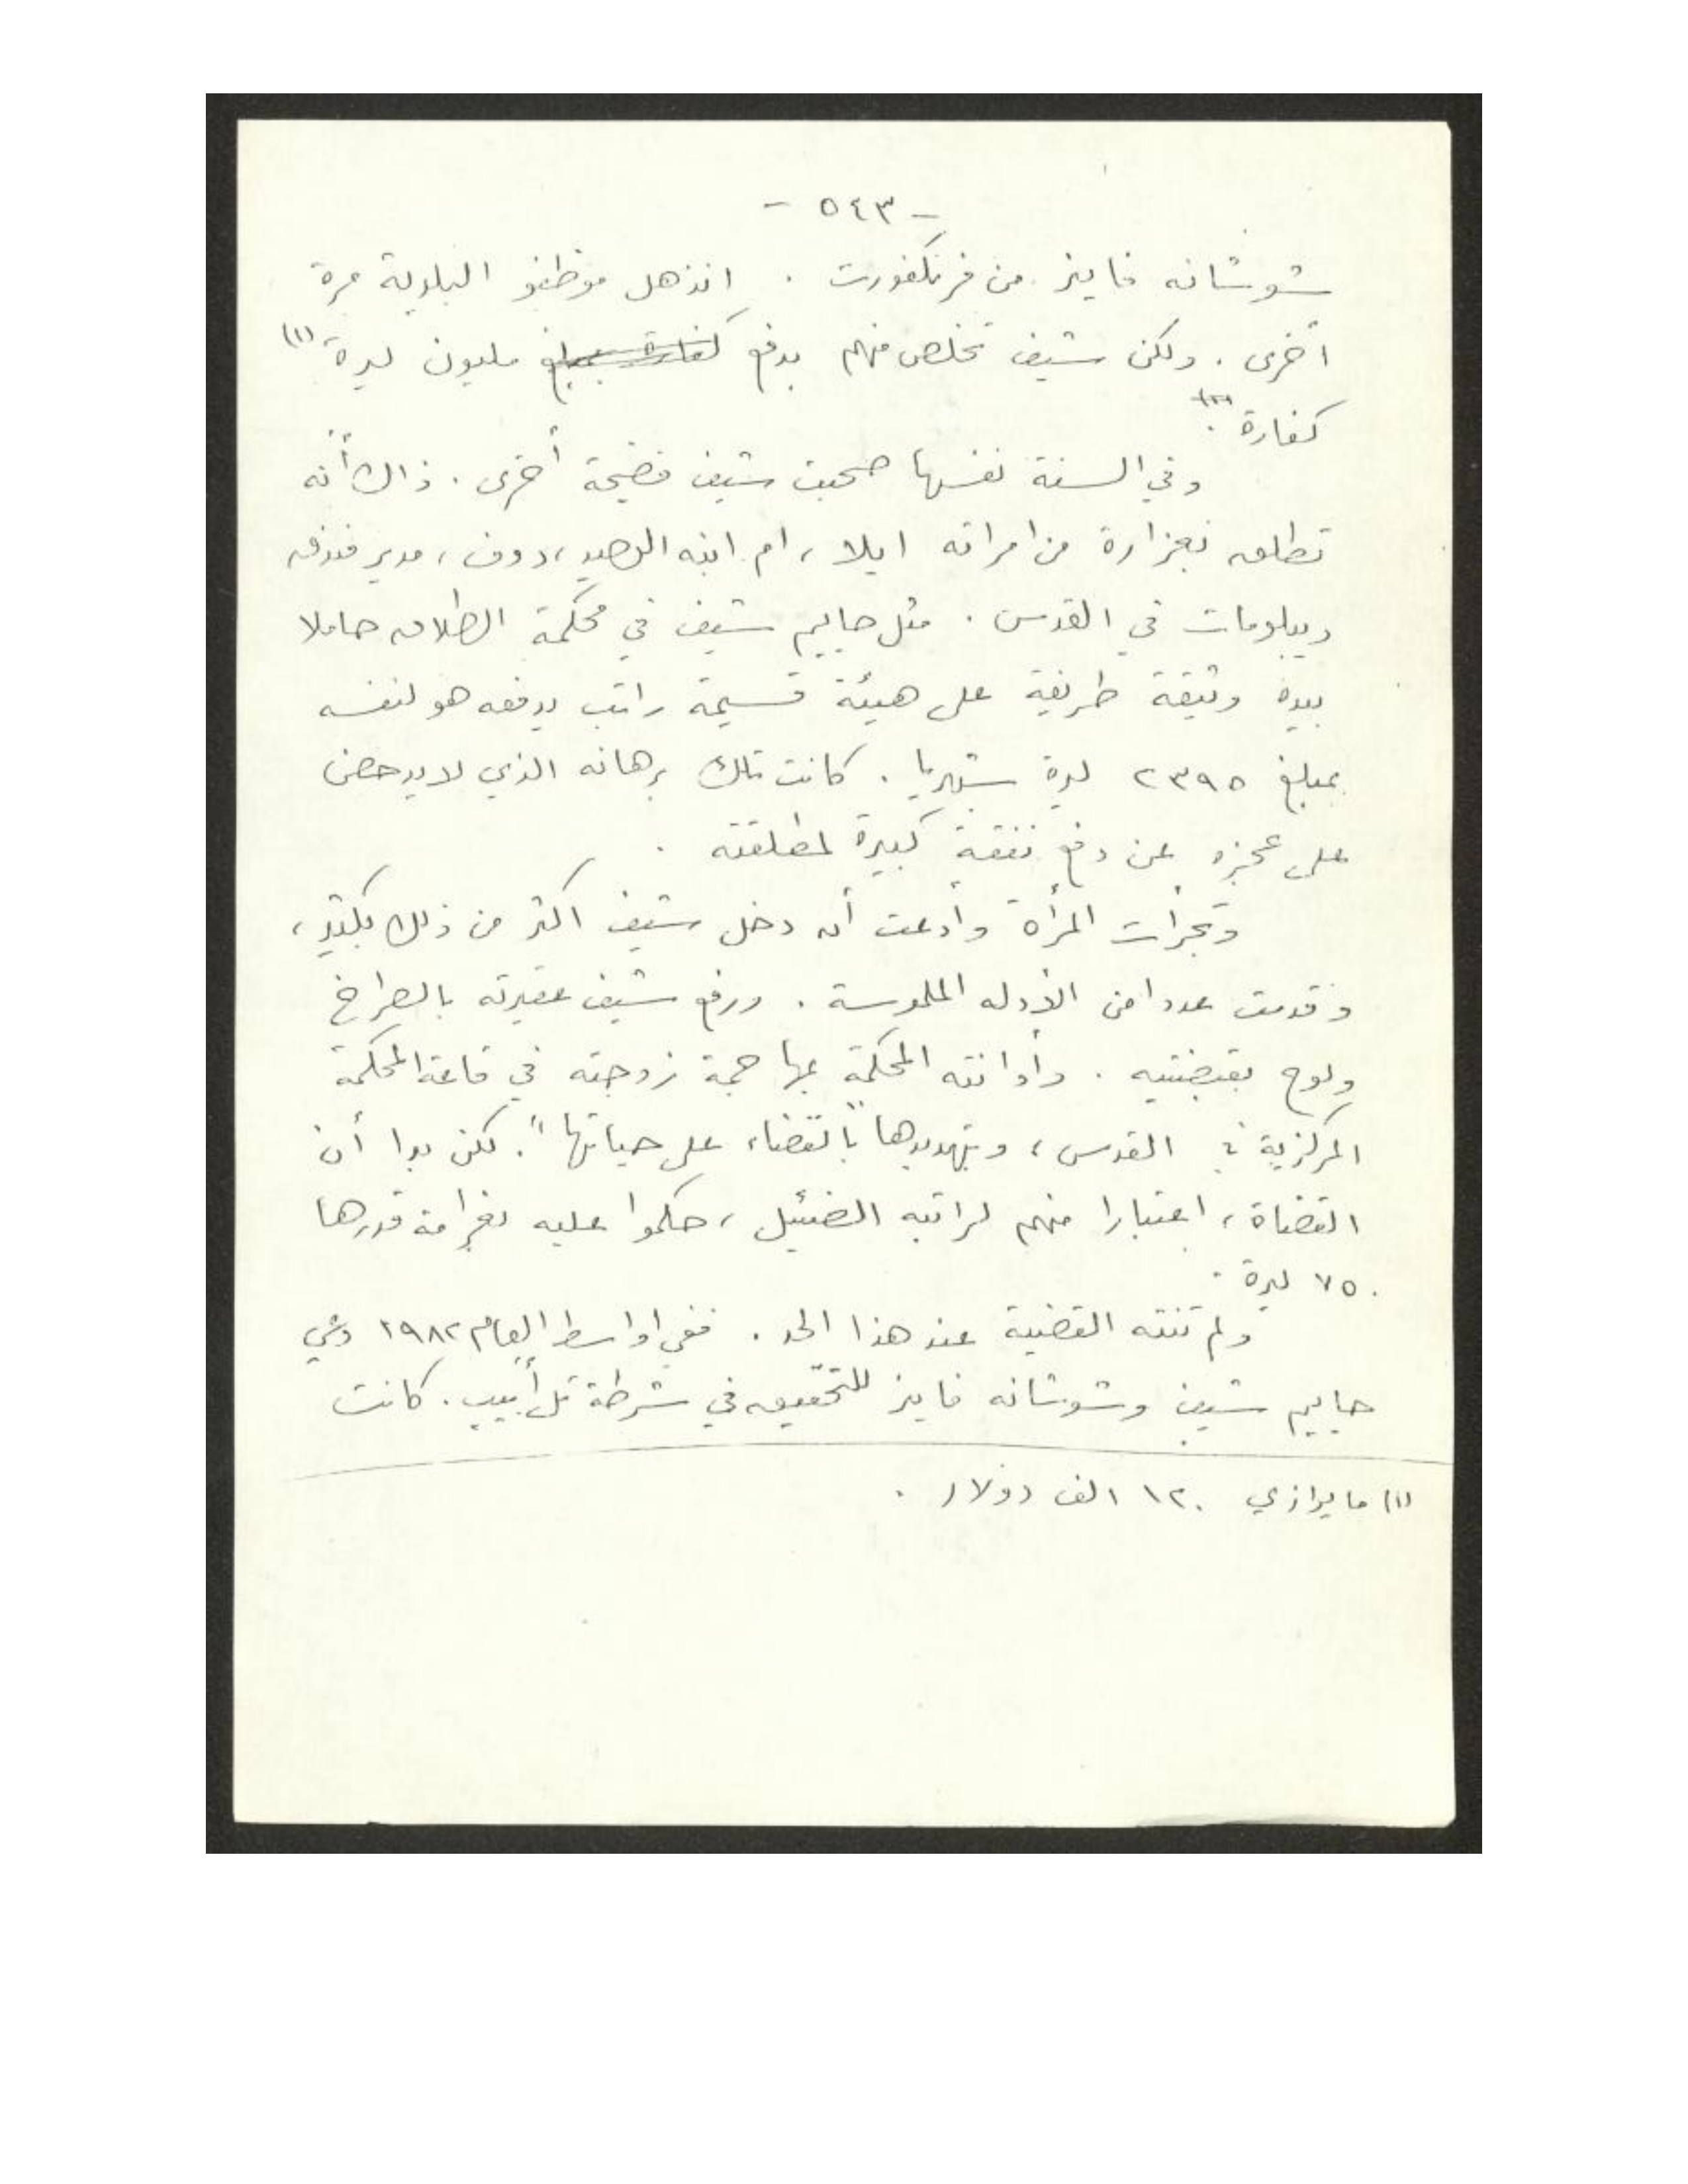 - ٥٤٣ -
شوشانه فاينز من فرنكفورت . انذهل موظفو البلدية مرة
أخرى . ولكن شيف تخلص منهم بدفع كفارة بمبلغ مليون ليرة (١)
كفارة .
وفي السنة نفسها صحبت شيف فضيحة أخرى . ذاك أنه
تطلق بغزارة من امراته ايلا ، ام ابنه الوحيد ، دوف ، مدير فندق
ديبلومات في القدس . مثل حاييم شيف في محكمة الطلاق حاملا
بيده وثيقة طريفة على هيئة قسيمة راتب يدفعه هو لنفسه
بمبلغ ٢٣٩٥ ليرة شهريا . كانت تلك برهانه الذي لا يدحض
على عجزه عن دفع نفقة كبيرة لمطلقته .
وتجرأت المرأة وأدعت أن دخل شيف اكثر من ذلك بكثير ،
وقدمت عددا من الأدله الملموسة . ورفع شيف عقيرته بالصراخ
ولوح بقبضتيه . وأدانته المحكمة بمهاجمة زوجته في قاعة المحكمة
المركزية في القدس ، وبتهديدها "بالقضاء على حياتها" . لكن بدا أن
القضاة ، اعتبارا منهم لراتبه الضئيل ، حكموا عليه بغرامة قدرها
٧٥٠ ليرة .
ولم تنته القضية عند هذا الحد . ففي اواسط العام ١٩٨٢ دعي
حاييم شيف وشوشانه فاينز للتحقيق في شرطة تل أبيب . كانت
(١) ما يوازي ١٢٠ الف دولار .